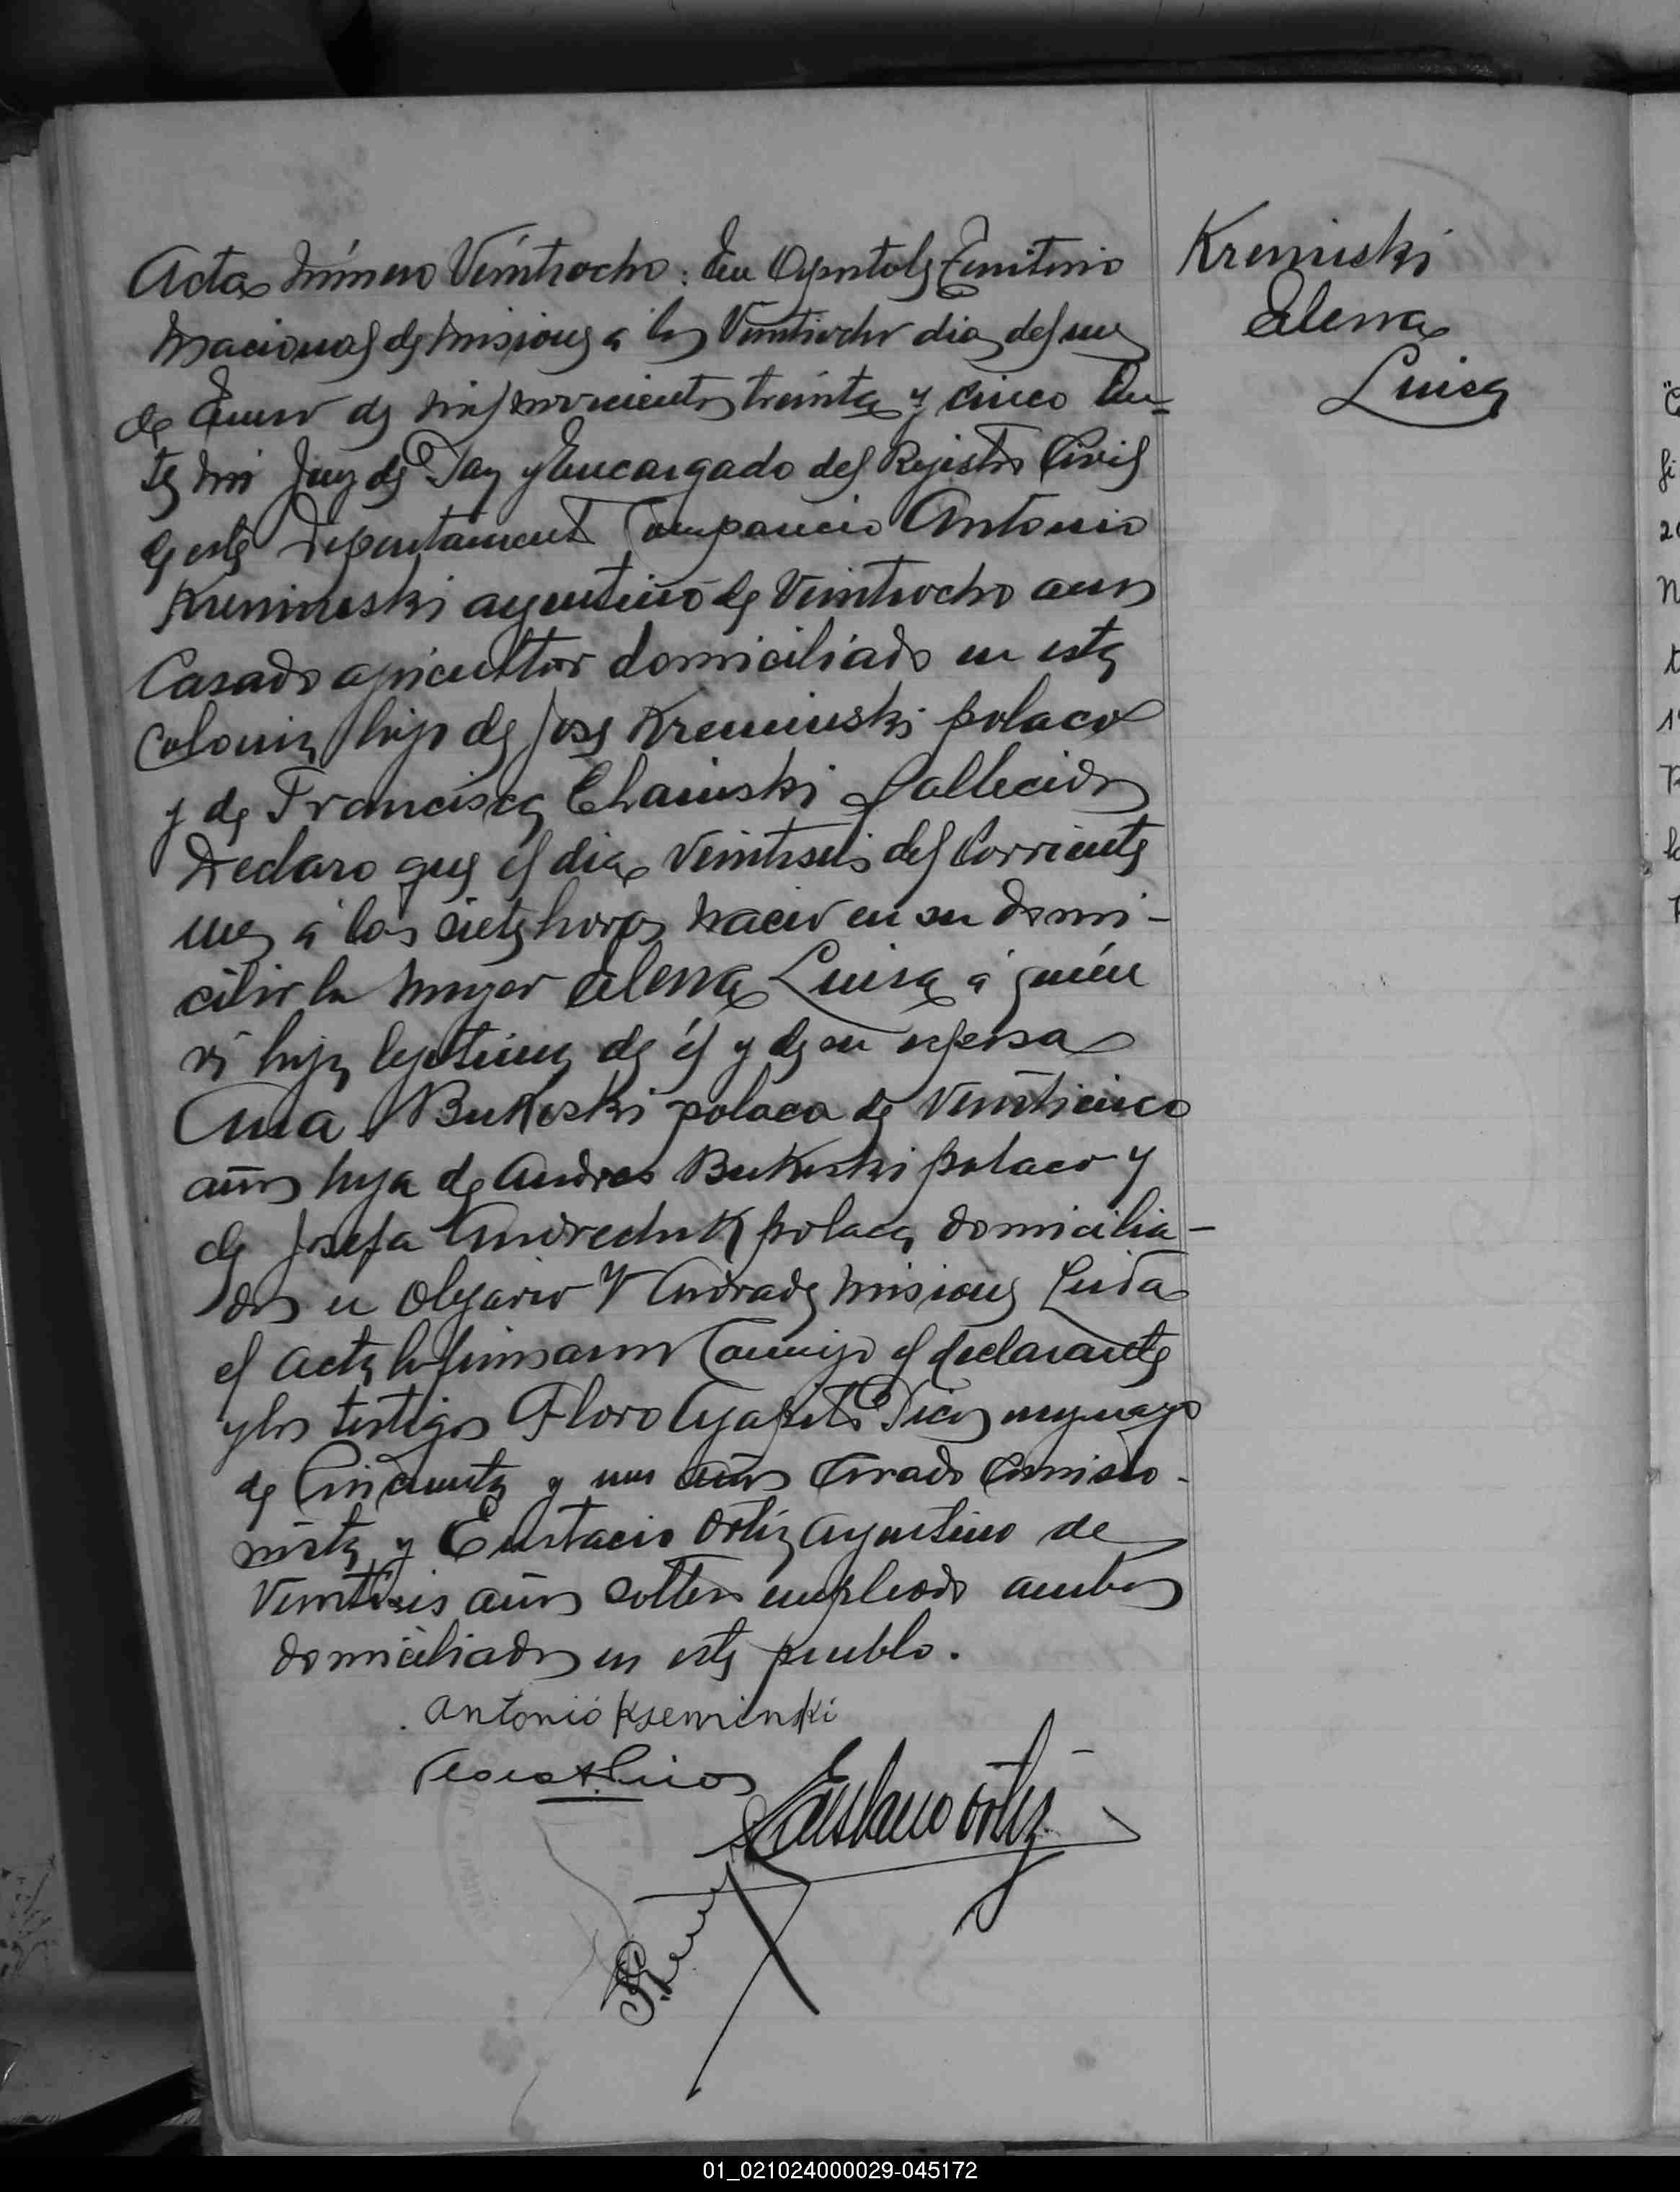 Acta Número Veintiocho: En Apostoles Territorio
Nacional de Misiones a los Veintiocho dias del mes
de Enero de mil novecientos treinta y cinco An=
te mi Juez de Paz y Encargado del Registro Civil
de este Departamento Comparecio Antonio
Kreminski argentino de Veintiocho años
Casado agricultor domiciliado en esta
Colonia hijo de Jose Kreminski polaco
y de Francisca Chaiuski fallecidos
Declaro que el dia Veintiseis del Corriente
mes á las siete horas nacio en su domi-
cilio la mujer Elena Luisa á quién
vi hija legitima de él y de su esposa
Ana Bukoski polaca de Veinticinco
años hija de Andres Bukoski polaco y
de Josefa Andrechuk polaca domicilia-
dos en Olegario V Andrade Misiones Leida
el acta la firmaron Conmigo el declarante
y los testigos Floro Agapito Rios uruguayo
de Cincuenta y un años Casado Comisio-
nista y Eustacio Ortiz argentino de
Veintiseis años soltero empleado ambos
domiciliados en este pueblo.
Antonio Kseminski
Eustacio Ortiz
Kremiski
Elena
Luisa
01_021024000029-045172